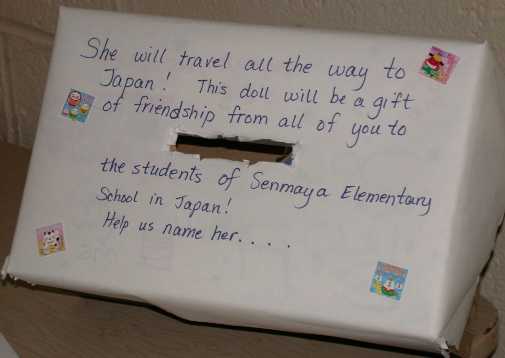 She will travel all the way to
Japan! This doll will be a gift
of friendship from all of you to
the students of Senmaya Elementary
School in Japan!
Help us name her....